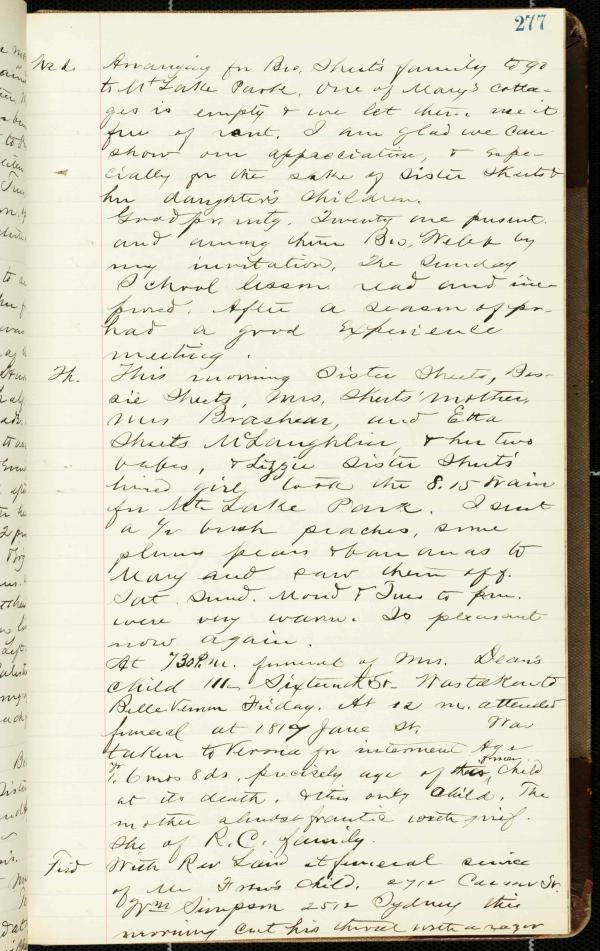 277
Wed. Arranging for Bro. Sheets family to go
to Mt Lake Park. One of Mary's cotta-
ges is empty & we let them use it
free of rent. I am glad we can
show our appreciation, & espe-
cially for the sake of Sister Sheets &
her daughter's children.
Good pr. mtg. Twenty one present
and among them Bro. Webb by
my invitation. The Sunday
School lesson read and
After a season of pr.
had a good Experience
meeting.
Th. This morning Sister Sheets, Bes-
sie Sheets, Mrs. Sheets' mother,
Mrs Brashear, and Etta
Sheets McLaughlin, & her two
babes, & Lizzie Sister Sheet's
hired girl took the 8.15 train
for Mt. Lake Park. I sent
a 1/2 bush peaches, some
plums pears & bananas to
Mary and saw them off.
Sat. Sund. Mond & Tues to p.m.
were very warm. Is pleasant
now again.
At 7 30 P.M. funeral of Mrs. Dean's
child 111 Sixteenth St. Was taken to
Belle Vernon Friday. At 12 m. attended
funeral at 1817 Jane St. Was
taken to Verona for interment Age
1 yr. 6 mos 8 ds. precisely age of former child
at its death. & this only child. The
mother almost frantic with grief.
She of R.C. family.
Frid With Rev Laird at funeral service
of Mr child. 2712 Carson St.
Wm Simpson 2512 Sydney this
morning cut his throat with a razor